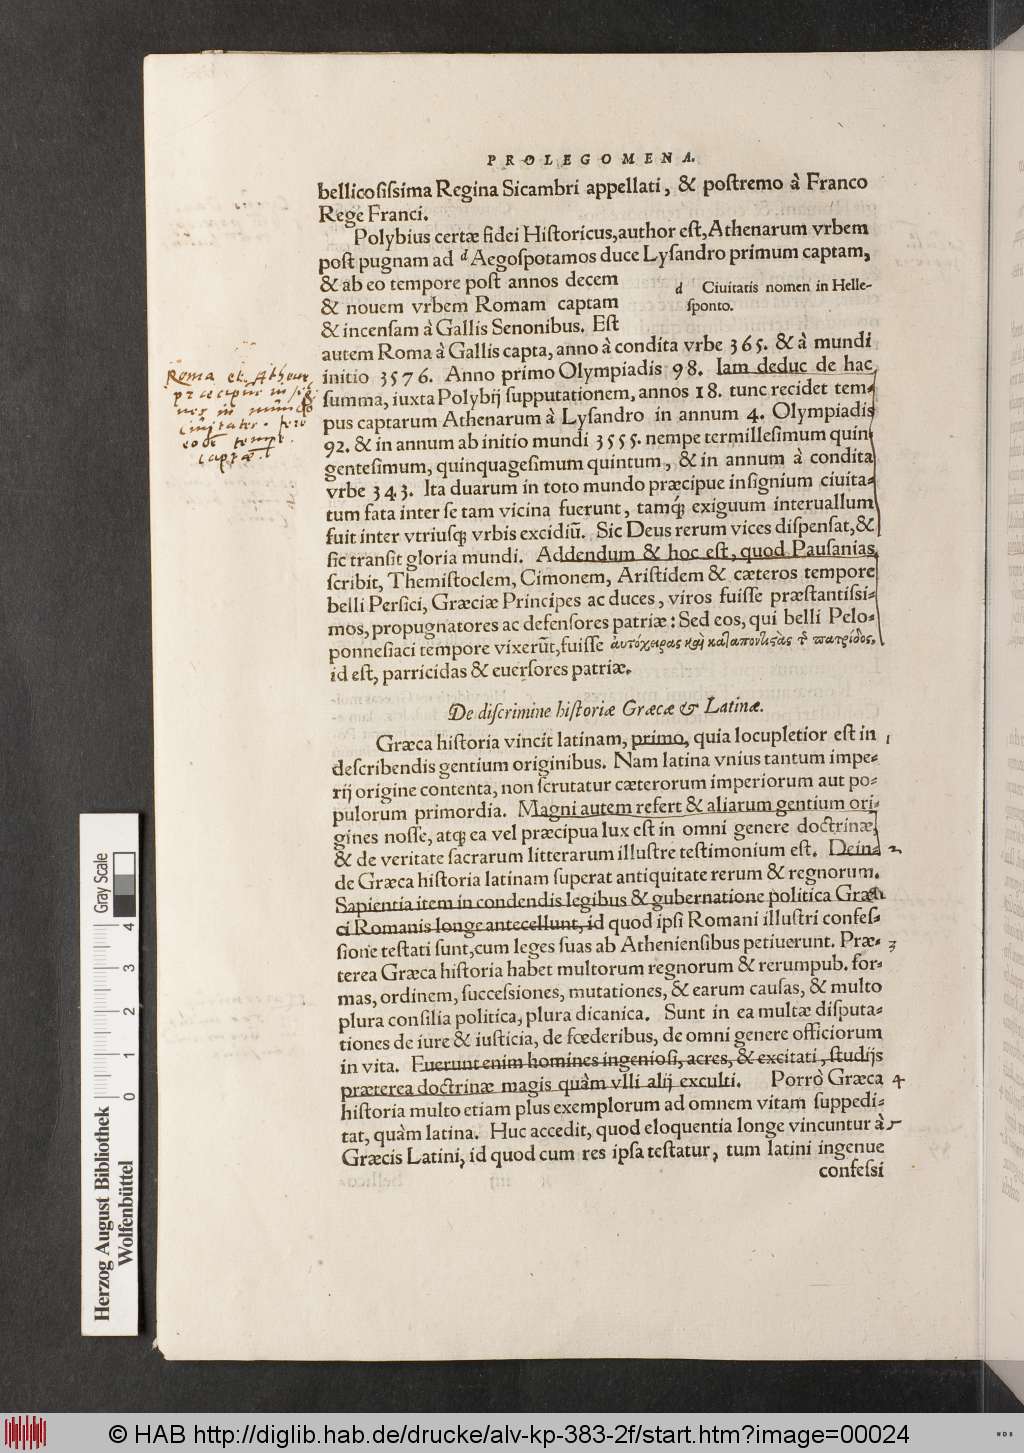 PROLEGOMENA.
bellicosiſsima Regina Sicambri appellati, & poſtremo à Franco
Rege Franci.
Polybius certæ fidei Hiſtoricus, author eſt, Athenarum vrbem
poſt pugnam ad d Aegoſpotamos duce Lyſandro primum captam,
& ab eo tempore poſt annos decem
& nouem vrbem Romam captam
& incenſam à Gallis Senonibus. Eſt
d Ciuitatis nomen in Helle-
ſponto.
autem Roma à Gallis capta, anno à condita vrbe 365. & à mundi
initio 3576. Anno primo Olympiadis 98. Iam deduc de hac
ſumma, iuxta Polybij ſupputationem, annos 18. tunc recidet tem-
pus captarum Athenarum à Lyſandro in annum 4. Olympiadis
92. & in annum ab initio mundi 3555. nempe termilleſimum quin
genteſimum, quinquageſimum quintum, & in annum à condita
vrbe 343. Ita duarum in toto mundo præcipue inſignium ciuita-
tum fata inter ſe tam vicina fuerunt, tamq́; exiguum interuallum
fuit inter vtriuſq; vrbis excidiũ. Sic Deus rerum vices diſpenſat, &
ſic tranſit gloria mundi. Addendum & hoc eſt, quod Pauſanias
ſcribit, Themiſtoclem, Cimonem, Ariſtidem & cæteros tempore
belli Perſici, Græciæ Principes ac duces, viros fuiſſe præſtantiſsi-
mos, propugnatores ac defenſores patriæ: Sed eos, qui belli Pelo-
ponneſiaci tempore vixerũt, fuiſſe αὐτόχειρας καὶ καταποντιστὰς τ̃ πατρίδος,
id eſt, parricidas & euerſores patriæ.
Roma et Athenæ
præcipuæ
in mundo
ciuitates fere
eodē tempe
captæ.
De diſcrimine hiſtoriæ Græcæ & Latinæ.
Græca hiſtoria vincit latinam, primo, quia locupletior eſt in 1
deſcribendis gentium originibus. Nam latina vnius tantum impe-
rij origine contenta, non ſcrutatur cæterorum imperiorum aut po-
pulorum primordia. Magni autem refert & aliarum gentium ori-
gines noſſe, atq; ea vel præcipua lux eſt in omni genere doctrinæ,
& de veritate ſacrarum litterarum illuſtre teſtimonium eſt. Dein- 2
de Græca hiſtoria latinam ſuperat antiquitate rerum & regnorum.
Sapientia item in condendis legibus & gubernatione politica Græ-
ci Romanis longe antecellunt, id quod ipſi Romani illuſtri confeſ-
ſione teſtati ſunt, cum leges ſuas ab Athenienſibus petiuerunt. Præ- 3
terea Græca hiſtoria habet multorum regnorum & rerumpub. for-
mas, ordinem, ſucceſsiones, mutationes, & earum cauſas, & multo
plura conſilia politica, plura dicanica. Sunt in ea multæ diſputa-
tiones de iure & iuſticia, de fœderibus, de omni genere officiorum
in vita. Fuerunt enim homines ingenioſi, acres, & excitati, ſtudijs
præterea doctrinæ magis quàm vlli alij exculti. Porrò Græca 4
hiſtoria multo etiam plus exemplorum ad omnem vitam ſuppedi-
tat, quàm latina. Huc accedit, quod eloquentia longe vincuntur à 5
Græcis Latini, id quod cum res ipſa teſtatur, tum latini ingenue
confeſsi
Gray Scale
0 1 2 3 4
Herzog August Bibliothek
Wolfenbüttel
© HAB http://diglib.hab.de/drucke/alv-kp-383-2f/start.htm?image=00024